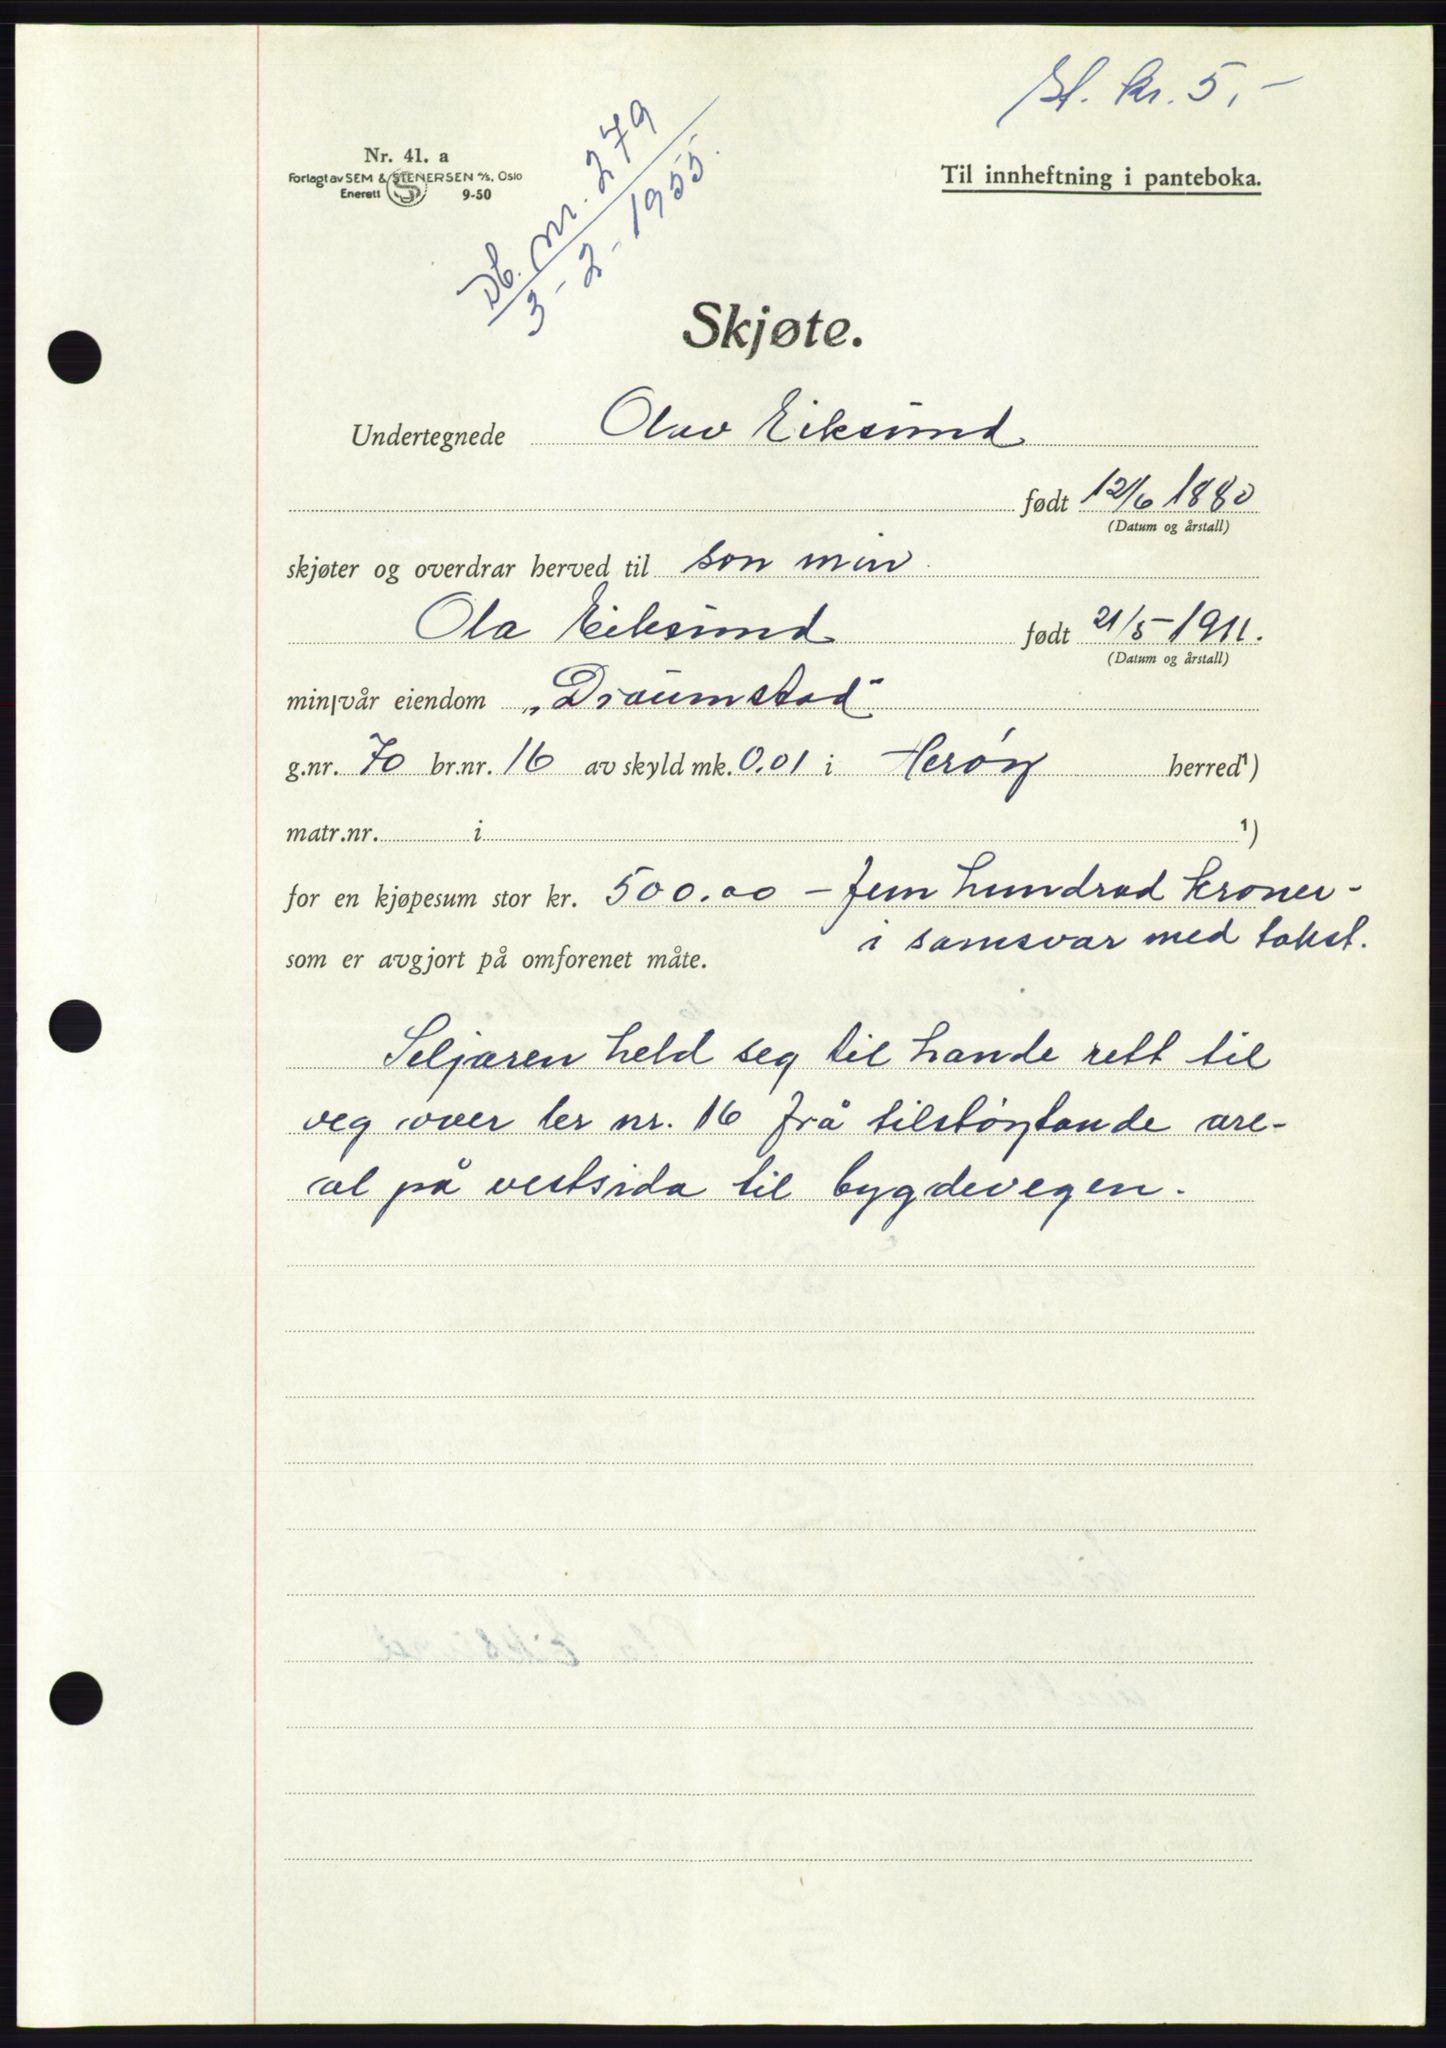 St. kr. 5,-
Nr. 41. a
Forlagt av SEM & STENERSEN A/S, Oslo
Enerett 9-50
Db. nr. 279
3-2-1955.
Til innheftning i panteboka.
Skjøte.
Undertegnede Olav Eiksund
født 12/6 1880
(Datum og årstall)
skjøter og overdrar herved til son min
Ola Eiksund født 21/5-1911.
(Datum og årstall)
min/vår eiendom „Draumstad"
g.nr. 70 br.nr. 16 av skyld mk. 0.01 i Herøy herred¹)
matr.nr. i ¹)
for en kjøpesum stor kr. 500.00 - fem hundrad kroner -
i samsvar med takst.
som er avgjort på omforenet måte.
Seljaren held seg til hande rett til
veg over br nr. 16 frå tilstøytande are-
al på vestsida til bygdevegen.